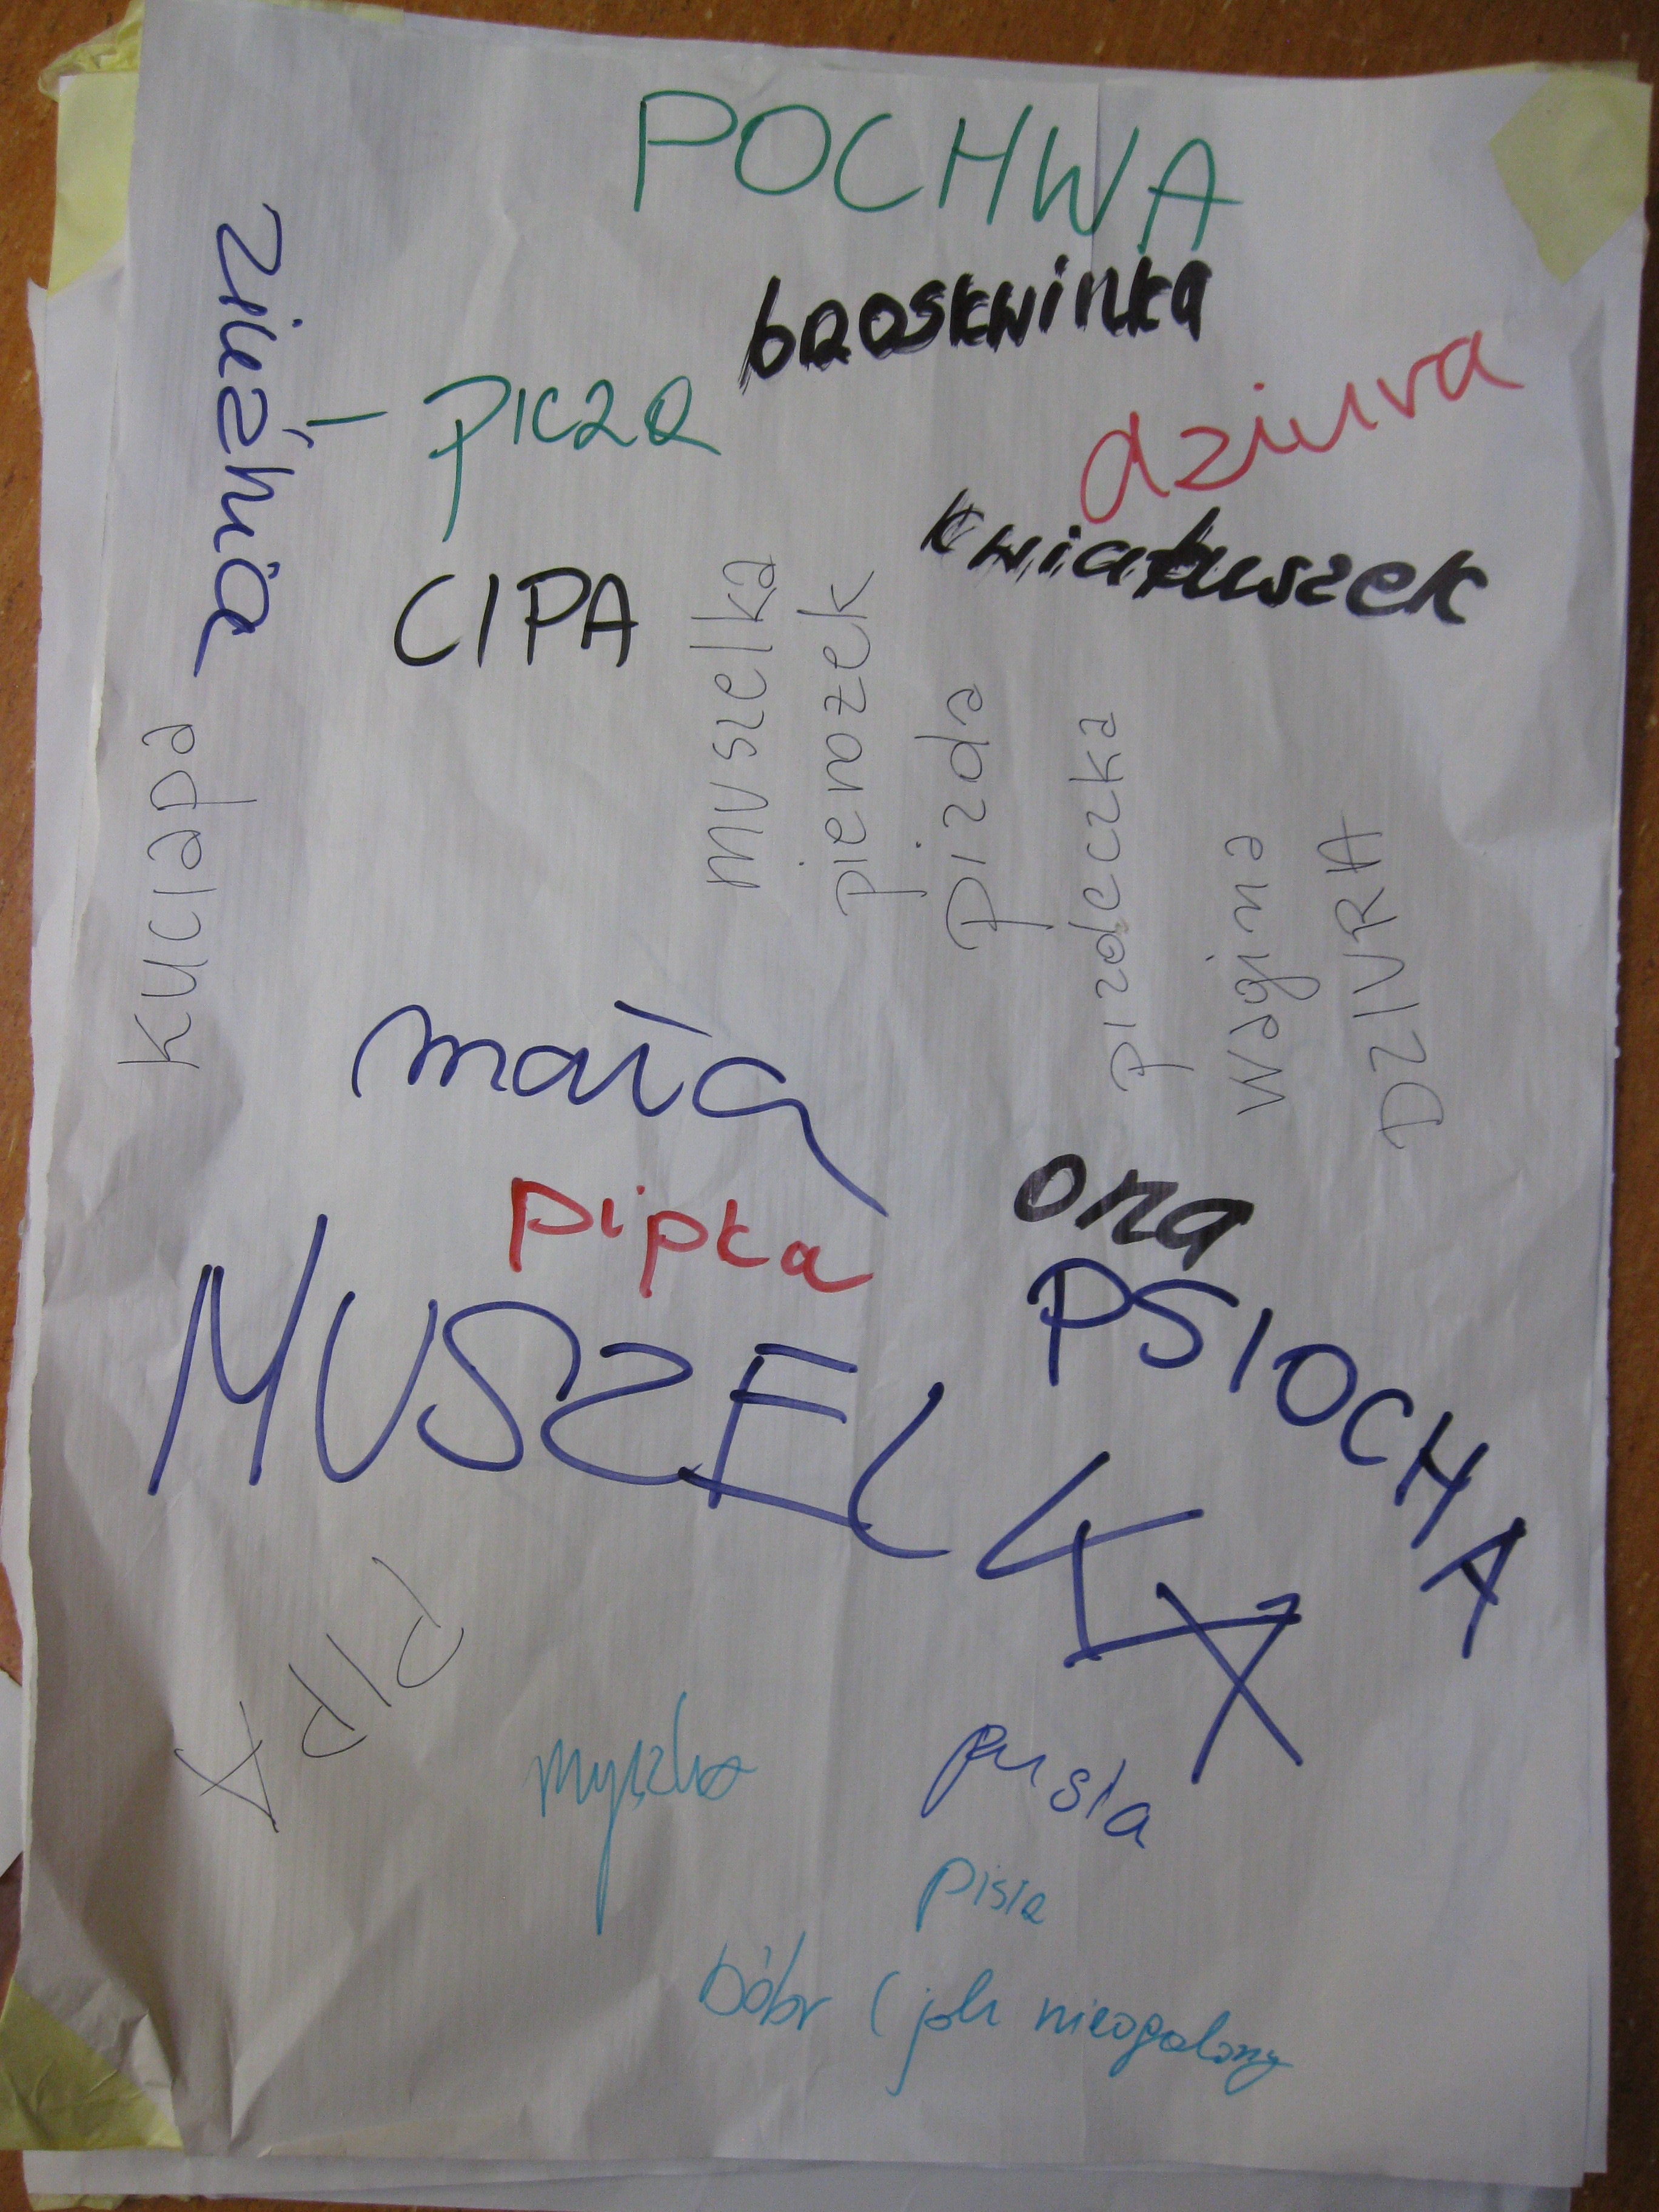 POCHWA
brzoskwinka
picza
dziura
kwiatuszek
CIPA
muszelka
pierożek
pizda
pizdeczka
wagina
DZIURA
kuciapa
mała
pipka
ona
PSIOCHA
MUSZELKA
PIPA
myszka
pusia
pisia
bóbr (jak nieogolony